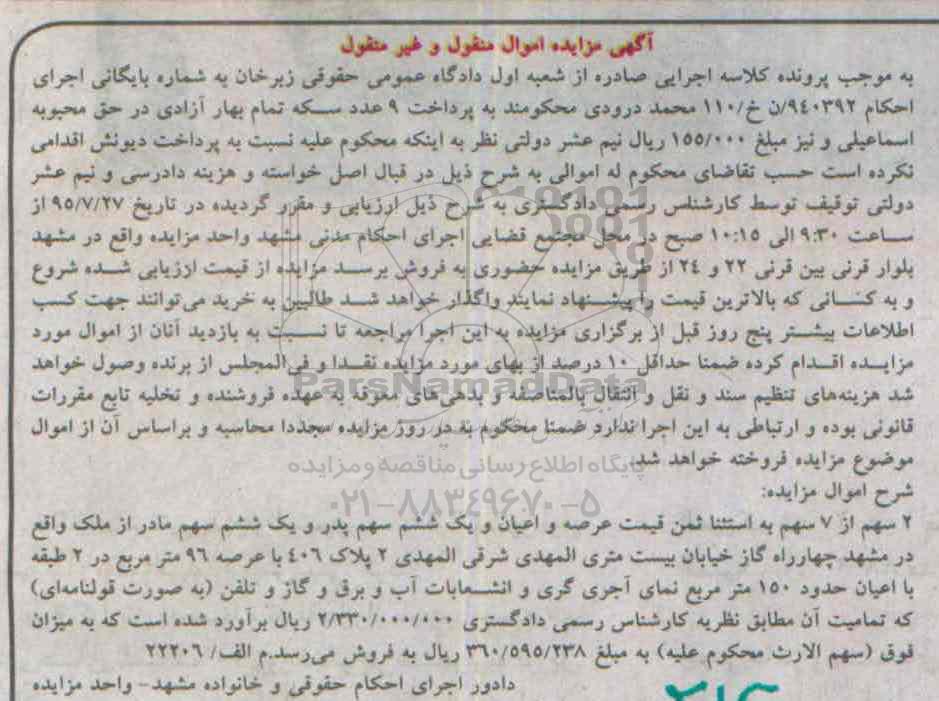 آگهی مزایده اموال منقول و غیر منقول
به موجب پرونده کلاسه اجرایی صادره از شعبه اول دادگاه عمومی حقوقی زبرخان به شماره بایگانی اجرای
احکام ۹٤۰۳۹۲/ن خ/۱۱۰ محمد درودی محکومند به پرداخت ۹ عدد سکه تمام بهار آزادی در حق محبوبه
اسماعیلی و نیز مبلغ ۱۵۵/۰۰۰ ریال نیم عشر دولتی نظر به اینکه محکوم علیه نسبت به پرداخت دیونش اقدامی
نکرده است حسب تقاضای محکوم له اموالی به شرح ذیل در قبال اصل خواسته و هزینه دادرسی و نیم عشر
دولتی توقیف توسط کارشناس رسمی دادگستری به شرح ذیل ارزیابی و مقرر گردیده در تاریخ ۹۵/۷/۲۷ از
ساعت ۹:۳۰ الی ۱۰:۱۵ صبح در محل مجتمع قضایی اجرای احکام مدنی مشهد واحد مزایده واقع در مشهد
بلوار قرنی بین قرنی ۲۲ و ۲٤ از طریق مزایده حضوری به فروش برسد مزایده از قیمت ارزیابی شده شروع
و به کسانی که بالاترین قیمت را پیشنهاد نمایند واگذار خواهد شد طالبین به خرید می‌توانند جهت کسب
اطلاعات بیشتر پنج روز قبل از برگزاری مزایده به این اجرا مراجعه تا نسبت به بازدید آنان از اموال مورد
مزایده اقدام کرده ضمنا حداقل ۱۰ درصد از بهای مورد مزایده نقدا و فی‌المجلس از برنده وصول خواهد
شد هزینه‌های تنظیم سند و نقل و انتقال بالمناصفه و بدهی‌های معوقه به عهده فروشنده و تخلیه تابع مقررات
قانونی بوده و ارتباطی به این اجرا ندارد ضمنا محکوم به در روز مزایده مجددا محاسبه و براساس آن از اموال
موضوع مزایده فروخته خواهد شد.
ParsNamadData
پایگاه اطلاع رسانی مناقصه و مزایده
۰۲۱-۸۸۳۴۹۶۷۰-۵
شرح اموال مزایده:
۲ سهم از ۷ سهم به استثنا ثمن قیمت عرصه و اعیان و یک ششم سهم پدر و یک ششم سهم مادر از ملک واقع
در مشهد چهارراه گاز خیابان بیست متری المهدی شرقی المهدی ۲ پلاک ٤۰٦ با عرصه ۹٦ متر مربع در ۲ طبقه
با اعیان حدود ۱۵۰ متر مربع نمای آجری گری و انشعابات آب و برق و گاز و تلفن (به صورت قولنامه‌ای)
که تمامیت آن مطابق نظریه کارشناس رسمی دادگستری ۲/۳۳۰/۰۰۰/۰۰۰ ریال برآورد شده است که به میزان
فوق (سهم الارث محکوم علیه) به مبلغ ۳٦۰/۵۹۵/۲۳۸ ریال به فروش می‌رسد.م الف/ ۲۲۲۰٦
دادور اجرای احکام حقوقی و خانواده مشهد- واحد مزایده